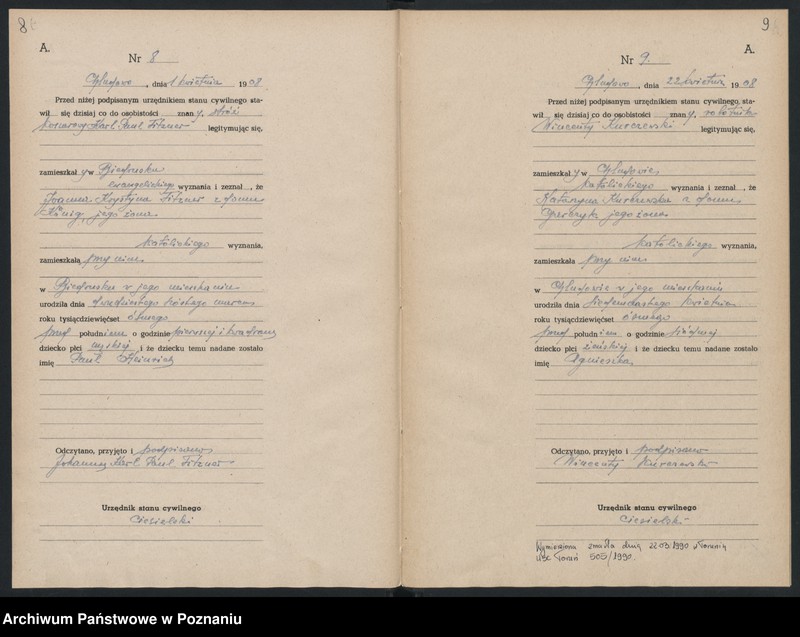 8
A.
Nr 8
Chludowo, dnia 1 kwietnia 1908
Przed niżej podpisanym urzędnikiem stanu cywilnego sta-
wił się dzisiaj co do osobistości znany, stróż
koszarowy Karl Paul Fitzner legitymując się,
zamieszkały w Biedrusku
ewangelickiego wyznania i zeznał, że
Joanna Krystyna Fitzner z domu
König, jego żona
katolickiego wyznania,
zamieszkała przy nim
w Biedrusku w jego mieszkaniu
urodziła dnia dwudziestego szóstego marca
roku tysiącdziewięćset ósmego
przed południem o godzinie pierwszej i kwadrans
dziecko płci męskiej i że dziecku temu nadane zostało
imię Paul Heinrich
Odczytano, przyjęto i podpisano
Johannes Karl Paul Fitzner
Urzędnik stanu cywilnego
Ciesielski
9
A.
Nr 9.
Chludowo, dnia 22 kwietnia 1908
Przed niżej podpisanym urzędnikiem stanu cywilnego sta-
wił się dzisiaj co do osobistości znany, robotnik
Wincenty Kurczewski legitymując się,
zamieszkały w Chludowie
katolickiego wyznania i zeznał, że
Katarzyna Kurczewska z domu
jego żona
katolickiego wyznania,
zamieszkała przy nim
w Chludowie w jego mieszkaniu
urodziła dnia siedemnastego kwietnia
roku tysiącdziewięćset ósmego
przed południem o godzinie siódmej
dziecko płci żeńskiej i że dziecku temu nadane zostało
imię Agnieszka
Odczytano, przyjęto i podpisano
Wincenty Kurczewski
Urzędnik stanu cywilnego
Ciesielski
Wymieniona zmarła dnia 22.03.1990 w Toruniu
USC Toruń 505/1990
Archiwum Państwowe w Poznaniu